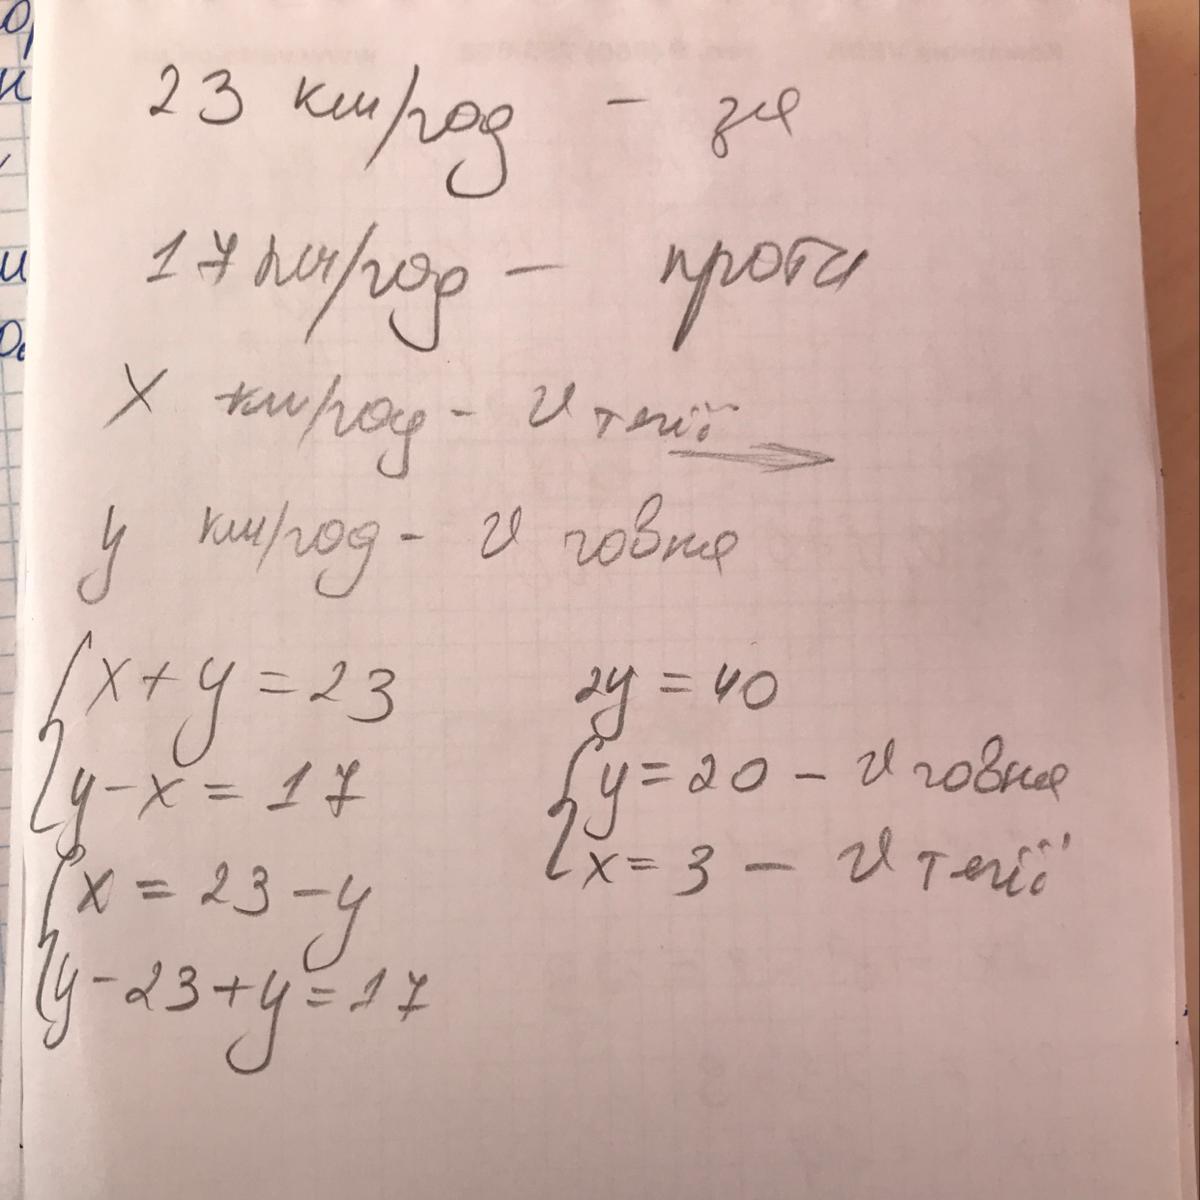 23 км/год - за
17 км/год - проти
x км/год - v течії
y км/год - v човна
x + y = 23
y - x = 17
x = 23 - y
y - 23 + y = 17
2y = 40
y = 20 - v човна
x = 3 - v течії